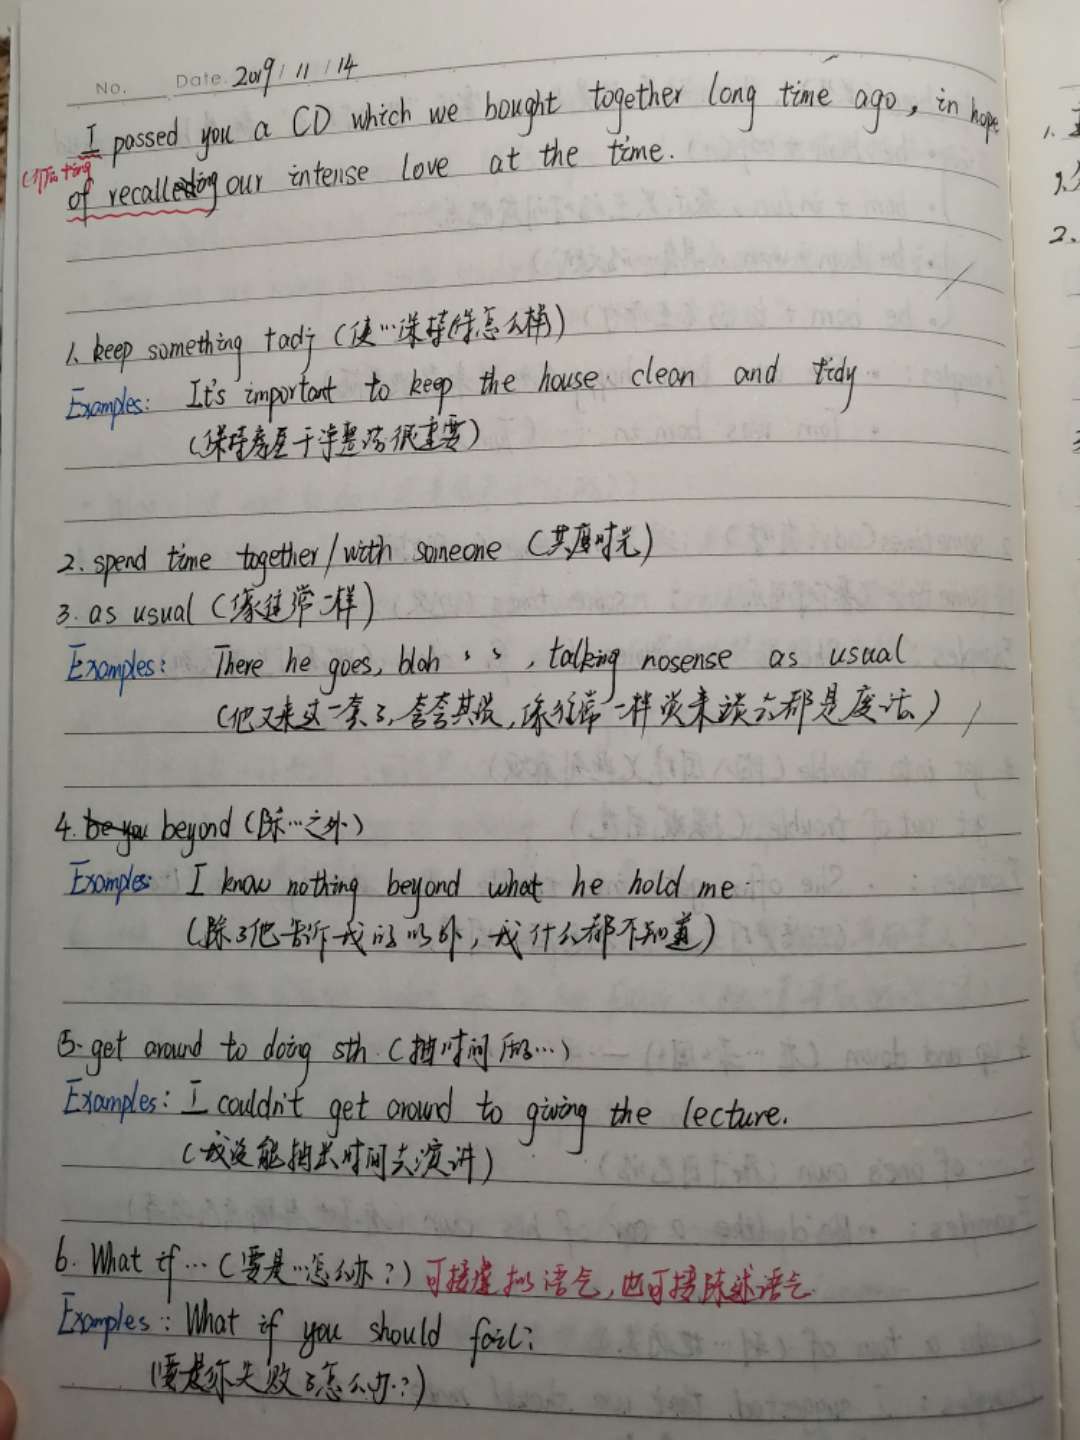 No. Date. 2019/11/14
I passed you a CD which we bought together long time ago, in hope
(介后+ing
of recalling our intense love at the time.
1. keep something +adj (使…保持怎么样)
Examples: It's important to keep the house clean and tidy
(保持房屋干净整洁很重要)
2. spend time together/with someone (共度时光)
3. as usual (像往常一样)
Examples: There he goes, blah 、、, talking nosense as usual
(他又来这一套了,夸夸其谈,像往常一样说来谈去都是废话)
4. be you beyond (除…之外)
Examples: I know nothing beyond what he hold me.
(除了他告诉我的以外,我什么都不知道)
5. get around to doing sth. (抽时间做…)
Examples: I couldn't get around to giving the lecture.
(我没能抽出时间去演讲)
6. What if … (要是…怎么办?) 可接虚拟语气,也可接陈述语气.
Examples: What if you should fail?
(要是你失败了怎么办?)